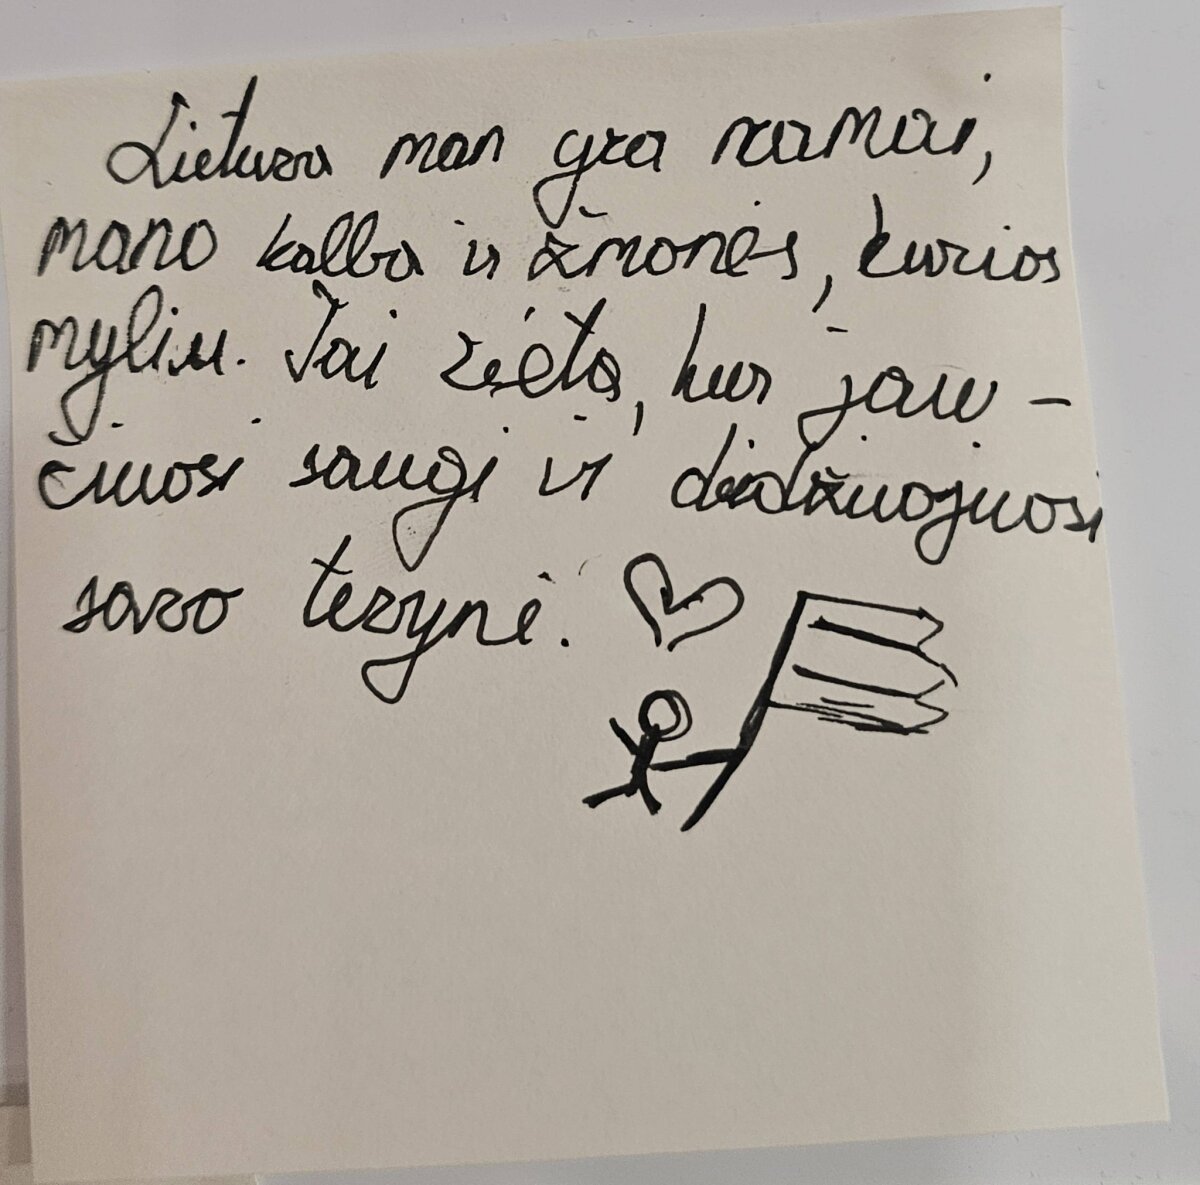 Lietuva man yra namai,
mano kalba ir žmonės, kurios
myliu. Tai vieta, kur jau-
čiuosi saugi ir didžiuojuosi
savo tėvyne.